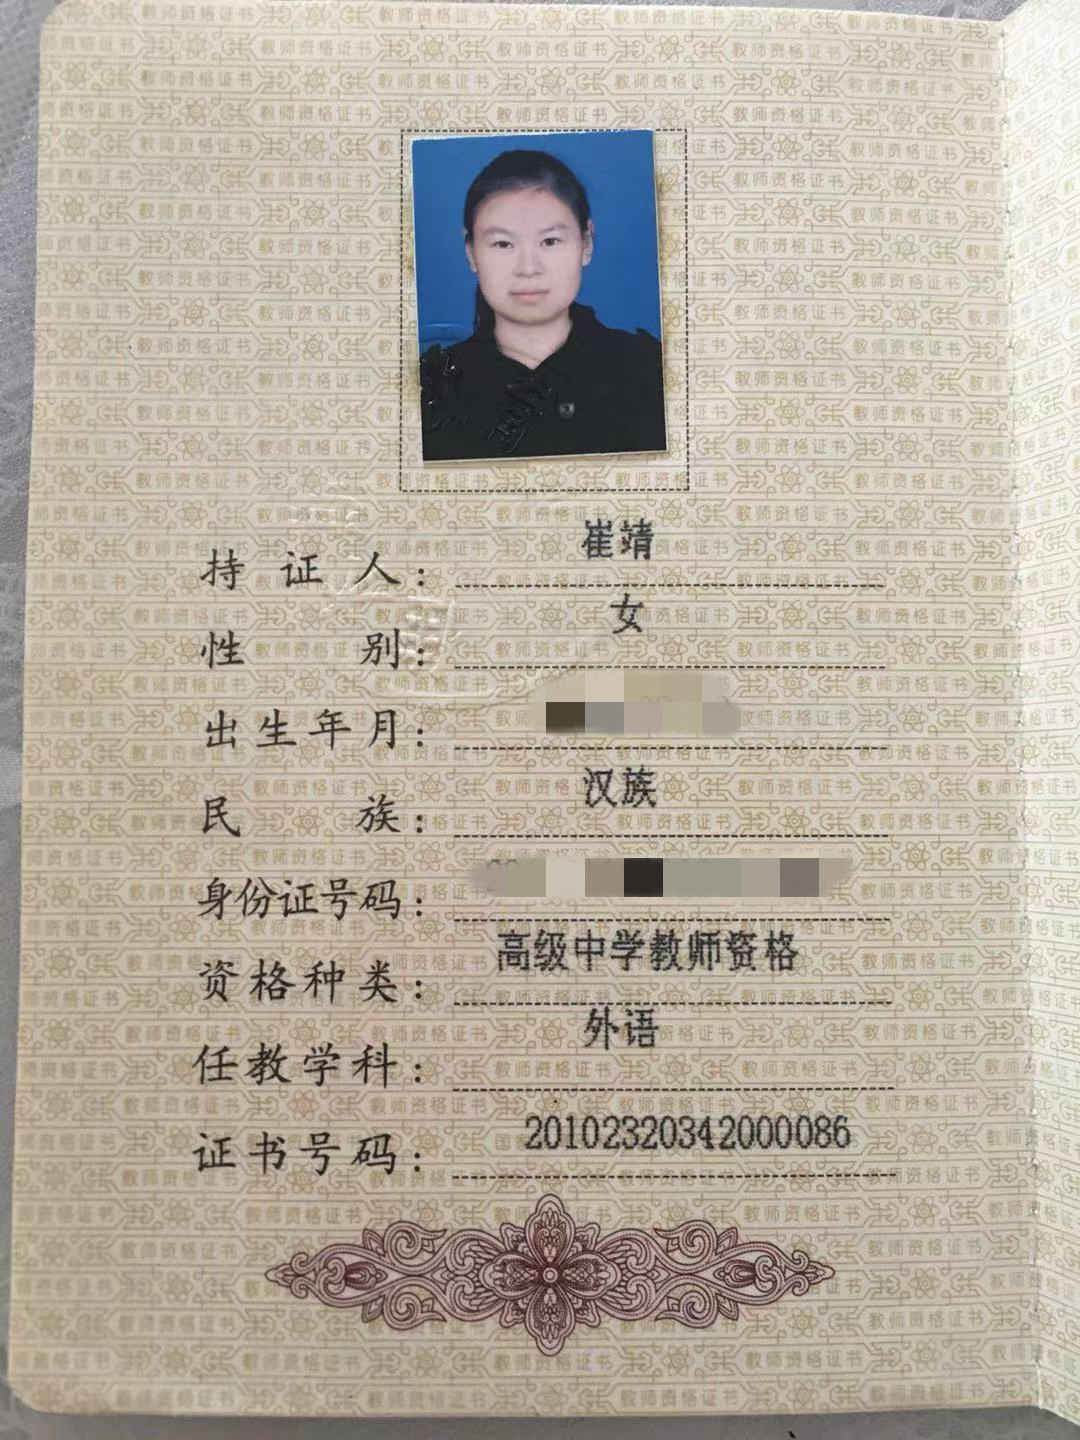 持证人：崔靖
性别：女
出生年月：
民族：汉族
身份证号码：
资格种类：高级中学教师资格
任教学科：外语
证书号码：20102320342000086